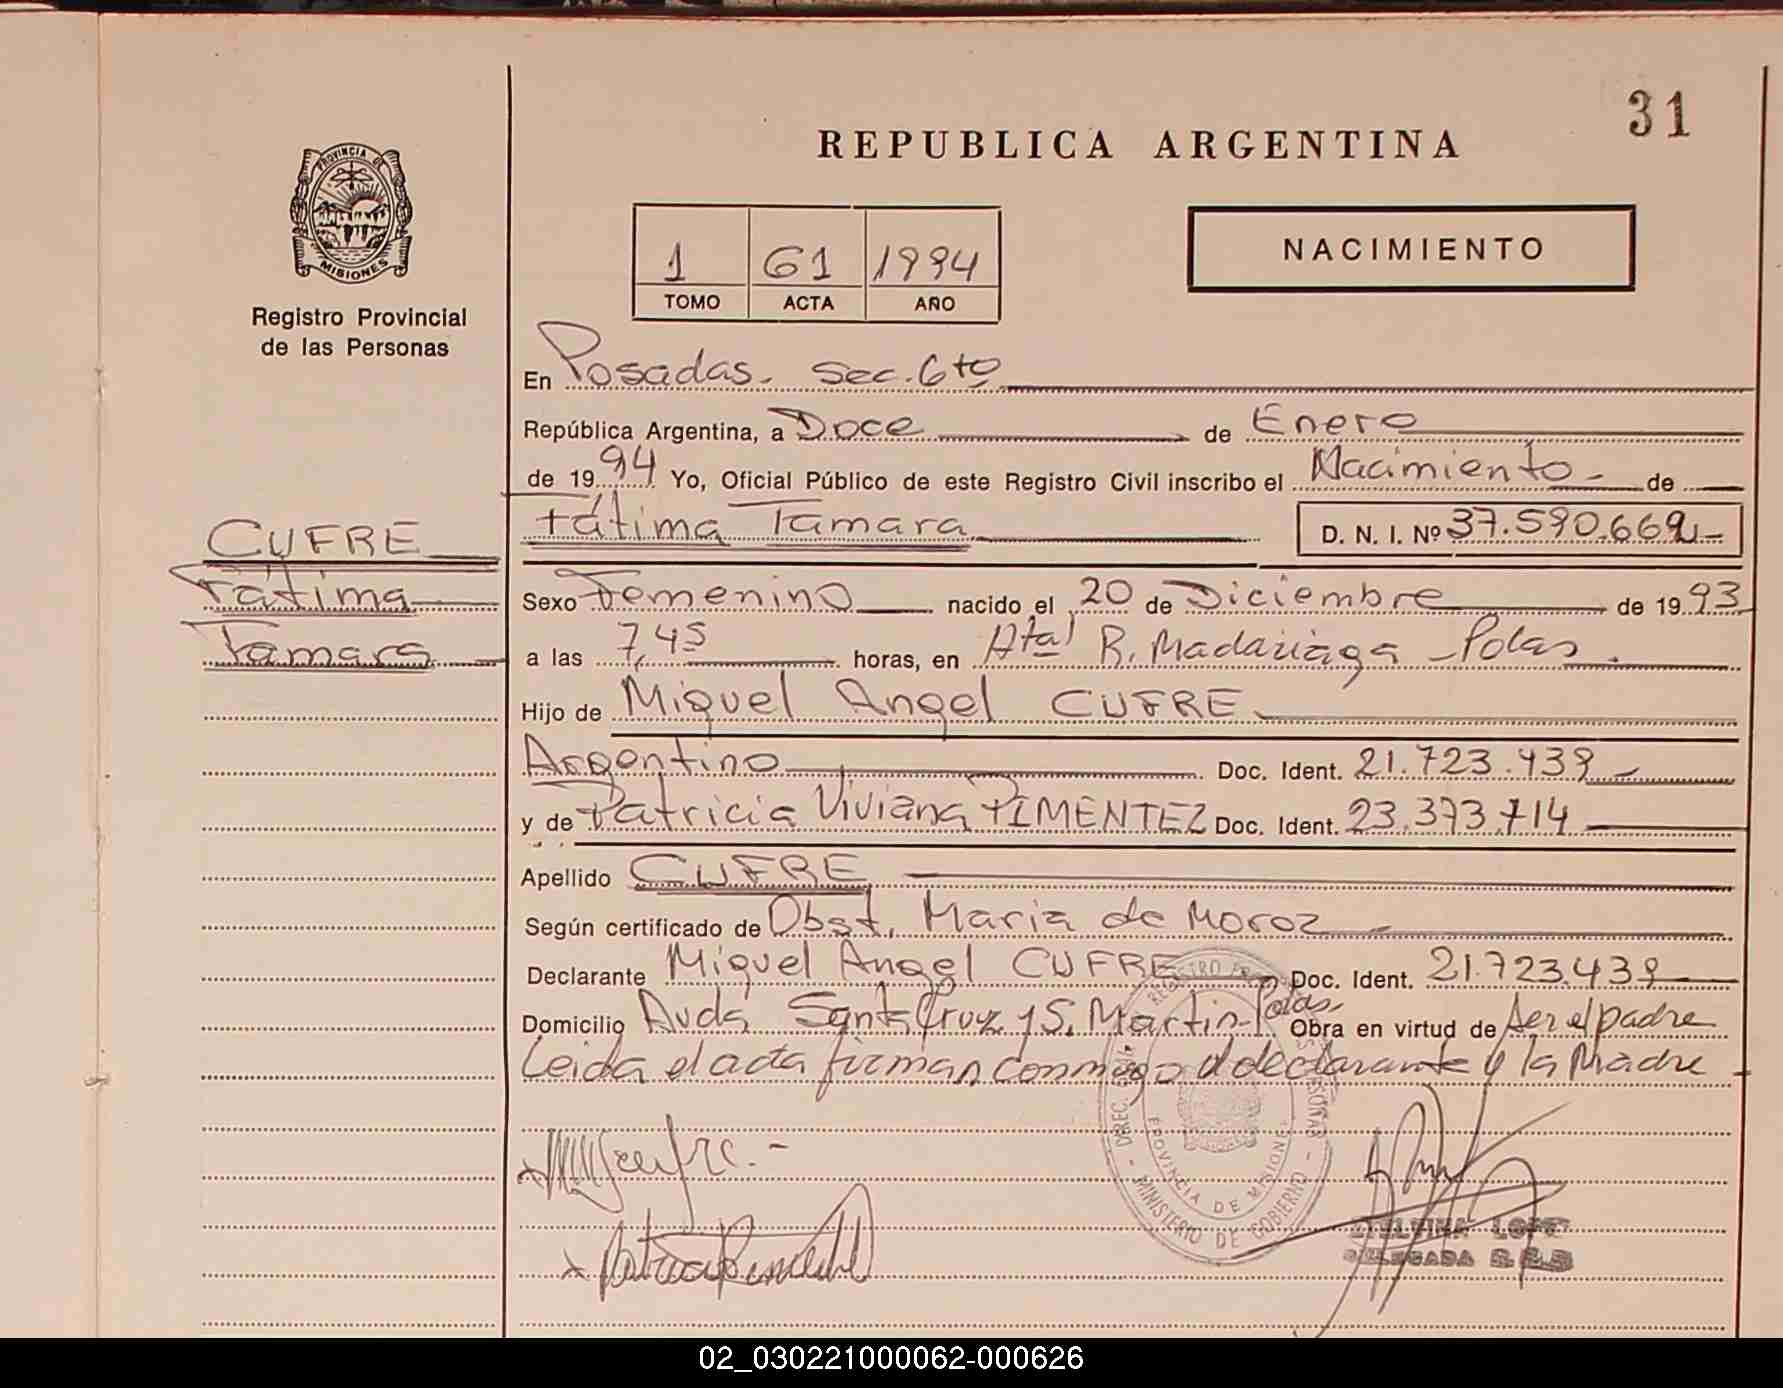 31
REPUBLICA ARGENTINA
PROVINCIA DE
MISIONES
Registro Provincial
de las Personas
1 61 1994
TOMO ACTA AÑO
NACIMIENTO
En Posadas. Sec. 6to
República Argentina, a Doce de Enero
de 1994 Yo, Oficial Público de este Registro Civil inscribo el Nacimiento de
CUFRE
Fátima
Tamara
Fátima Tamara D. N. I. Nº 37.590.669
Sexo Femenino nacido el 20 de Diciembre de 1993
a las 7,45 horas, en R. Madariaga - Pdas.
Hijo de Miguel Angel CUFRE
Argentino Doc. Ident. 21.723.439
y de Patricia Viviana PIMENTEZ Doc. Ident. 23.373.714
Apellido CUFRE
Según certificado de Obst. Maria de Moroz
Declarante Miguel Angel CUFRE Doc. Ident. 21.723.439
Domicilio Avda Santa Cruz y S. Martin-Pdas. Obra en virtud de ser el padre
Leida el acta firman conmigo el declarante y la Madre
REGISTRO
MINISTERIO DE GOBIERNO
PROVINCIA DE MISIONES
DELEGADA
02_030221000062-000626